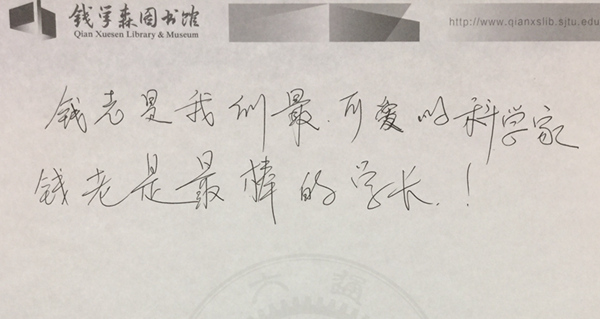 钱学森图书馆
Qian Xuesen Library & Museum
http://www.qianxslib.sjtu.edu
钱老是我们最可爱的科学家
钱老是最棒的学长！